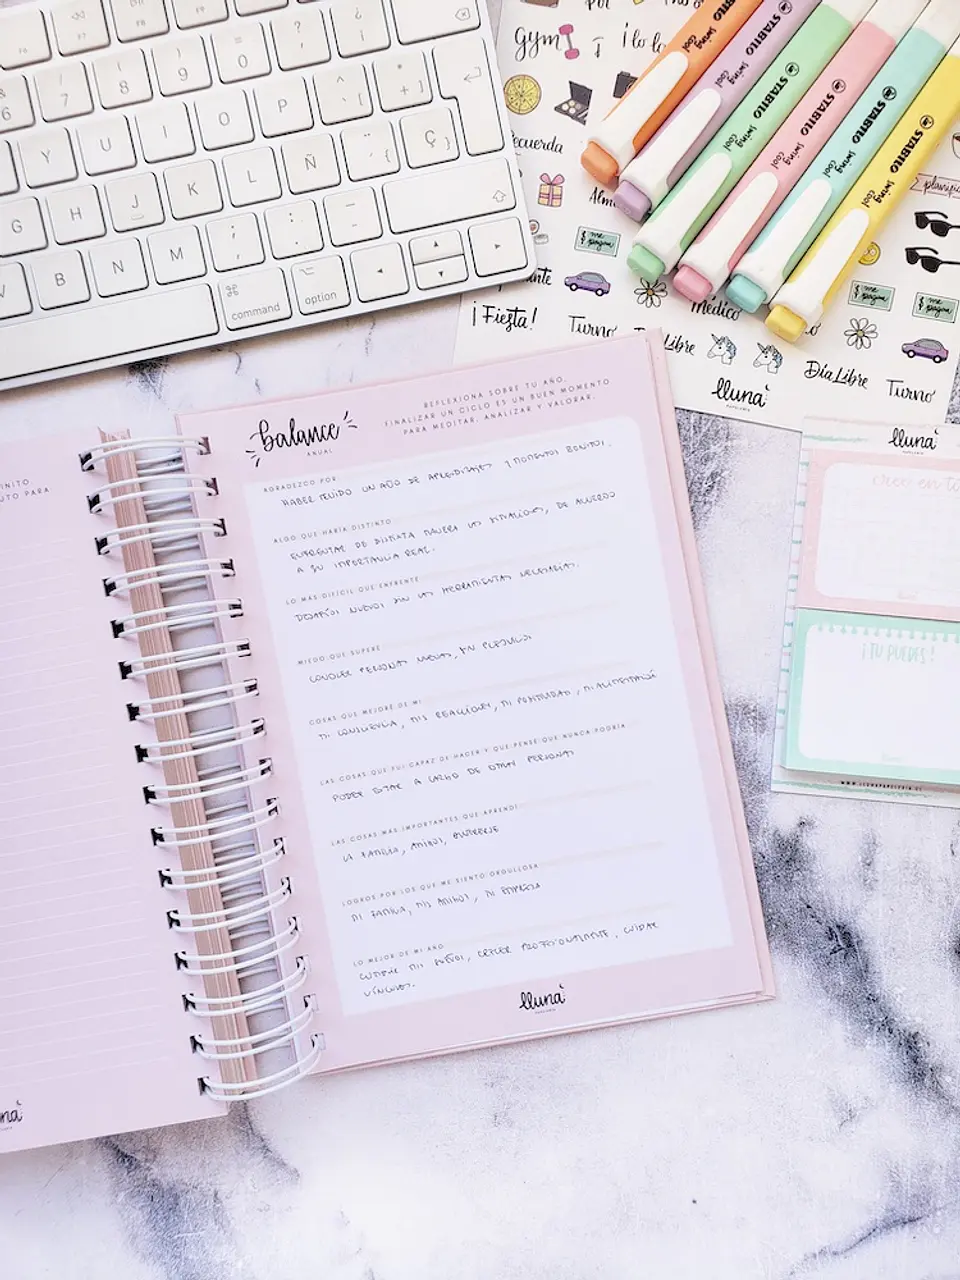 command
option
gym
¡Fiesta!
Turno
Médico
Día Libre
Turno
me pagan
me pagan
me pagan
lluna
PAPELERÍA
STABILO
swing cool
STABILO
swing cool
STABILO
swing cool
STABILO
swing cool
STABILO
swing cool
STABILO
swing cool
balance
ANUAL
REFLEXIONA SOBRE TU AÑO.
FINALIZAR UN CICLO ES UN BUEN MOMENTO
PARA MEDITAR, ANALIZAR Y VALORAR.
AGRADEZCO POR
HABER TENIDO UN AÑO DE APRENDIZAJES Y MOMENTOS BONITOS.
ALGO QUE HARÍA DISTINTO
ENFRENTAR DE DISTINTA MANERA LAS SITUACIONES, DE ACUERDO
A SU IMPORTANCIA REAL.
LO MÁS DIFÍCIL QUE ENFRENTÉ
DESAFÍOS NUEVOS SIN LAS HERRAMIENTAS NECESARIAS.
MIEDO QUE SUPERÉ
CONOCER PERSONAS NUEVAS, SIN PREJUICIO
COSAS QUE MEJORÉ DE MI
MI CONSCIENCIA, MIS REACCIONES, MI POSITIVIDAD, MI ALIMENTACIÓN
LAS COSAS QUE FUI CAPAZ DE HACER Y QUE PENSÉ QUE NUNCA PODRÍA
PODER ESTAR A CARGO DE OTRAS PERSONAS
LAS COSAS MÁS IMPORTANTES QUE APRENDÍ
LA FAMILIA, AMIGOS,
LOGROS POR LOS QUE ME SIENTO ORGULLOSA
MI FAMILIA, MIS AMIGOS, MI EMPRESA
LO MEJOR DE MI AÑO
CUMPLIR MIS SUEÑOS, CRECER PROFESIONALMENTE, CUIDAR
VÍNCULOS.
lluna
PAPELERÍA
lluna
¡TU PUEDES!